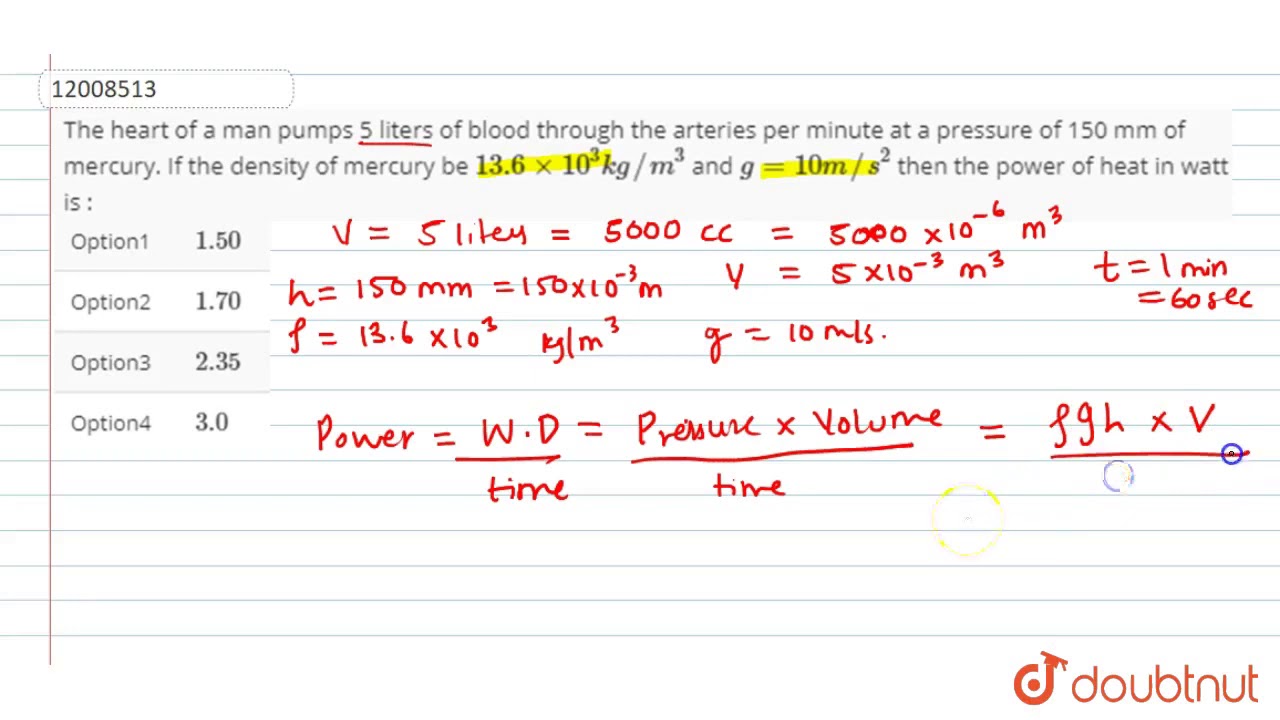 12008513
The heart of a man pumps 5 liters of blood through the arteries per minute at a pressure of 150 mm of
mercury. If the density of mercury be 13.6 × 10³kg/m³ and g = 10m/s² then the power of heat in watt
is :
Option1 1.50
Option2 1.70
Option3 2.35
Option4 3.0
V = 5 liters = 5000 cc = 5000 ×10⁻⁶ m³
V = 5×10⁻³ m³
t = 1 min
= 60 sec
h = 150 mm = 150×10⁻³m
ρ = 13.6 ×10³ kg/m³ g = 10 m/s.
Power = W.D / time = Pressure × Volume / time = ρgh × V
doubtnut